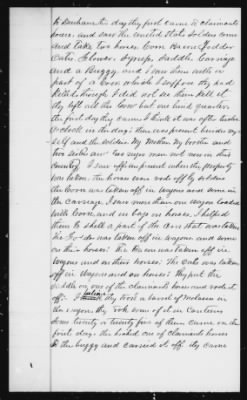 to Buckham the day they first came to claimants
house, and saw the United States soldiers come
and take two horses, Corn, Bacon, Fodder
Oats, Flour, Syrup, Saddle, Carriage
and a Buggy, and I saw them with a
part of a cow which I suppose they had
killed, though I did not see them kill it
they left all the cow but one hind quarter
the first day they came, I think it was after twelve
O'clock in the day; there was present besides my
self and the soldiers My Mother My brother and
two sisters and two negro men not now in this
Country. I saw all in person when the property
was taken. The horses were rode off by soldiers
the Corn was taken off in wagons and some in
the carriage, I saw more than one wagon loaded
with Corn, and in bags on horses. I helped
them to shell a part of the corn that was taken
The Fodder was taken off in wagons and some
on their horses. The Bacon was taken off in
wagons and on their horses; The Oats was taken
off in wagons and on horses; They put the
saddle on one of the claimants horses and rode it
off. I believe they took a barrel of molasses in
the wagon, they took some of it in Canteens
Some twenty or twenty five of them came on the
first day. They hitched one of claimants horses
to the buggy and carried it off, they came